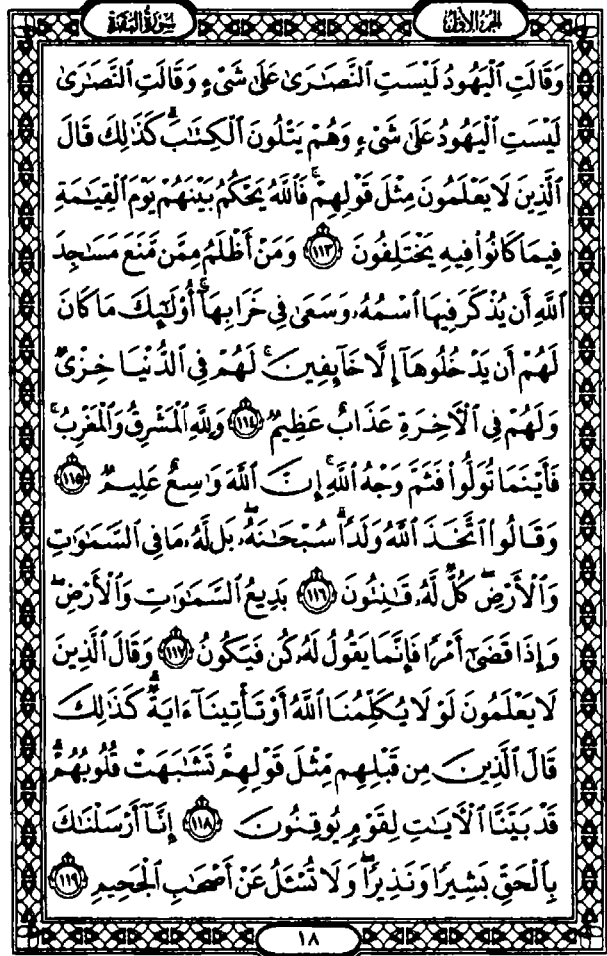 الجزء الأول
سورة البقرة
وَقَالَتِ ٱلْيَهُودُ لَيْسَتِ ٱلنَّصَٰرَىٰ عَلَىٰ شَىْءٍ وَقَالَتِ ٱلنَّصَٰرَىٰ
لَيْسَتِ ٱلْيَهُودُ عَلَىٰ شَىْءٍ وَهُمْ يَتْلُونَ ٱلْكِتَٰبَ ۗ كَذَٰلِكَ قَالَ
ٱلَّذِينَ لَا يَعْلَمُونَ مِثْلَ قَوْلِهِمْ ۚ فَٱللَّهُ يَحْكُمُ بَيْنَهُمْ يَوْمَ ٱلْقِيَٰمَةِ
فِيمَا كَانُوا۟ فِيهِ يَخْتَلِفُونَ ﴿١١٣﴾ وَمَنْ أَظْلَمُ مِمَّن مَّنَعَ مَسَٰجِدَ
ٱللَّهِ أَن يُذْكَرَ فِيهَا ٱسْمُهُۥ وَسَعَىٰ فِى خَرَابِهَآ ۚ أُو۟لَٰٓئِكَ مَا كَانَ
لَهُمْ أَن يَدْخُلُوهَآ إِلَّا خَآئِفِينَ ۚ لَهُمْ فِى ٱلدُّنْيَا خِزْىٌ
وَلَهُمْ فِى ٱلْءَاخِرَةِ عَذَابٌ عَظِيمٌ ﴿١١٤﴾ وَلِلَّهِ ٱلْمَشْرِقُ وَٱلْمَغْرِبُ ۚ
فَأَيْنَمَا تُوَلُّوا۟ فَثَمَّ وَجْهُ ٱللَّهِ ۚ إِنَّ ٱللَّهَ وَٰسِعٌ عَلِيمٌ ﴿١١٥﴾
وَقَالُوا۟ ٱتَّخَذَ ٱللَّهُ وَلَدًا ۗ سُبْحَٰنَهُۥ ۖ بَل لَّهُۥ مَا فِى ٱلسَّمَٰوَٰتِ
وَٱلْأَرْضِ ۖ كُلٌّ لَّهُۥ قَٰنِتُونَ ﴿١١٦﴾ بَدِيعُ ٱلسَّمَٰوَٰتِ وَٱلْأَرْضِ ۖ
وَإِذَا قَضَىٰٓ أَمْرًا فَإِنَّمَا يَقُولُ لَهُۥ كُن فَيَكُونُ ﴿١١٧﴾ وَقَالَ ٱلَّذِينَ
لَا يَعْلَمُونَ لَوْلَا يُكَلِّمُنَا ٱللَّهُ أَوْ تَأْتِينَآ ءَايَةٌ ۗ كَذَٰلِكَ
قَالَ ٱلَّذِينَ مِن قَبْلِهِم مِّثْلَ قَوْلِهِمْ ۘ تَشَٰبَهَتْ قُلُوبُهُمْ ۗ
قَدْ بَيَّنَّا ٱلْءَايَٰتِ لِقَوْمٍ يُوقِنُونَ ﴿١١٨﴾ إِنَّآ أَرْسَلْنَٰكَ
بِٱلْحَقِّ بَشِيرًا وَنَذِيرًا ۖ وَلَا تُسْـَٔلُ عَنْ أَصْحَٰبِ ٱلْجَحِيمِ ﴿١١٩﴾
١٨